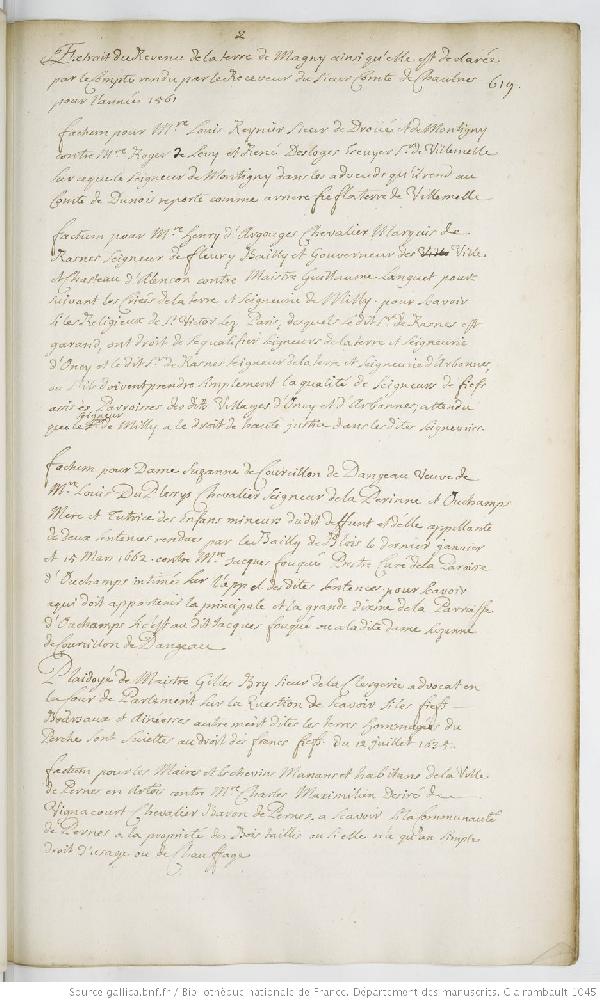 2
Extrait du Revenu de la terre de Magny ainsi qu'elle est declarée
par le Compte rendu par le Receveur du sieur Comte de Chaulnes 619.
pour l'année 1561
factum pour Mre Louis Reynier sieur de Droüé et de Montigny
contre Mre Roger de Levy et René Desloges Escuyer Sr de Vilemelle
sur ce que le seigneur de Montigny dans les adveuds qu'il rend au
Comte de Dunois reporte comme arriere fief la terre de Villemelle
factum pour Mre Henry d'Argouges Chevalier Marquis de
Rasnes seigneur de fleury Bailly et Gouverneur des Ville
et Chasteau d'Alencon contre Maistre Guillaume Languet pour
suivant les Criées de la terre et seigneurie de Milly pour scavoir
si les Religieux de St Victor lez Paris, desquels ledit Sr de Rasnes est
garand, ont droit de se qualifier seigneurs de la terre et seigneurie
d'Oncy et ledit Sr de Rasnes seigneur de la terre et seigneurie d'Arbonnes,
ou s'ils doivent prendre simplement la qualité de seigneurs de fiefs
assis es Parroisses desdits Villages d'Oncy et d'Arbonnes, attendu
que le seigneur de Milly a le droit de haute justice dans lesdites seigneuries.
factum pour Dame Suzanne de Courcillon de Dangeau Veuve de
Mre Louis Du Plessys Chevalier seigneur de la Perinne et Ouchamps
Mere et Tutrice des Enfans mineurs dudit deffunt et d'elle appellante
de deux sentences rendues par le Bailly de Blois le dernier janvier
et 15 Mars 1662. contre Mre Jacques fouqué Prstre Curé de la Paroisse
d'Ouchamps intimés sur l'appel desdites sentences pour scavoir
a qui doit appartenir la principale et la grande dixme de la Parroisse
d'Ouchamps si c'est audit Jacques fouqué ou a ladite dame suzanne
de Courcillon de Dangeau
Plaidoyé de Maistre Gilles Bry sieur de la Clergerie advocat en
la Cour de Parlement sur la Question de scavoir si les fiefs
Boursaux et aineesses autrement dites les terres hommagées du
Perche sont suiettes au droit des francs fiefs. du 12 juillet 1634.
factum pour les Maires et Eschevins Manans et habitans de la Ville
de Pernes en Artois contre Mre Charles Maximilien Desiré de
Vignacourt Chevalier Baron de Pernes, a scavoir si la Communauté
de Pernes a la proprieté des Bois taillis ou si elle n'a qu'un simple
droit d'usage ou de Chauffage
Source gallica.bnf.fr / Bibliothèque nationale de France. Département des manuscrits. Clairambault 1045